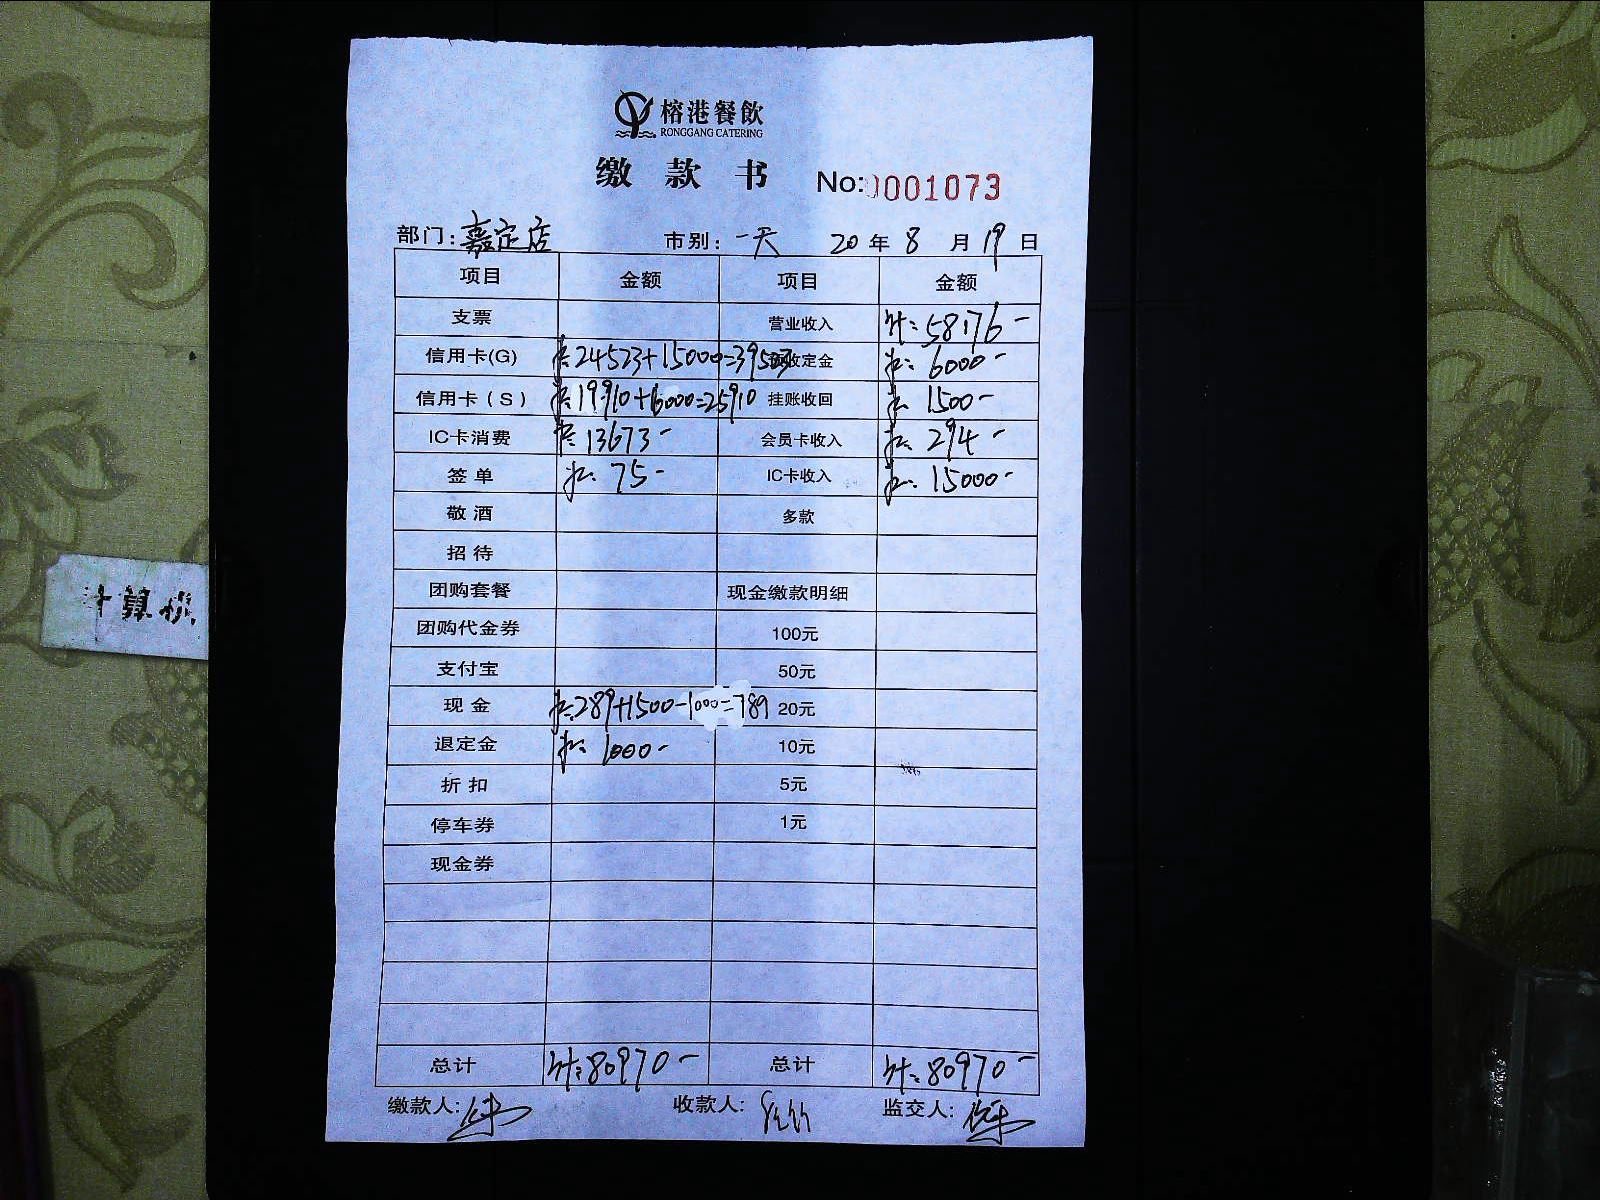 榕港餐飲
RONGGANG CATERING
缴款书 No:0001073
部门:嘉定店 市别:一天 20年8月19日
项目 金额 项目 金额
支票 营业收入 计:58176-
信用卡(G) 24523+15000=39523 预收定金 6000-
信用卡(S) 19910+6000=25910 挂账收回 1500-
IC卡消费 13673- 会员卡收入 294-
签单 75- IC卡收入 15000-
敬酒 多款
招待
团购套餐 现金缴款明细
团购代金券 100元
支付宝 50元
现金 289+1500-1000=789 20元
退定金 1000- 10元
折扣 5元
停车券 1元
现金券
总计 计:80970- 总计 计:80970-
缴款人: 收款人: 监交人:
计算机